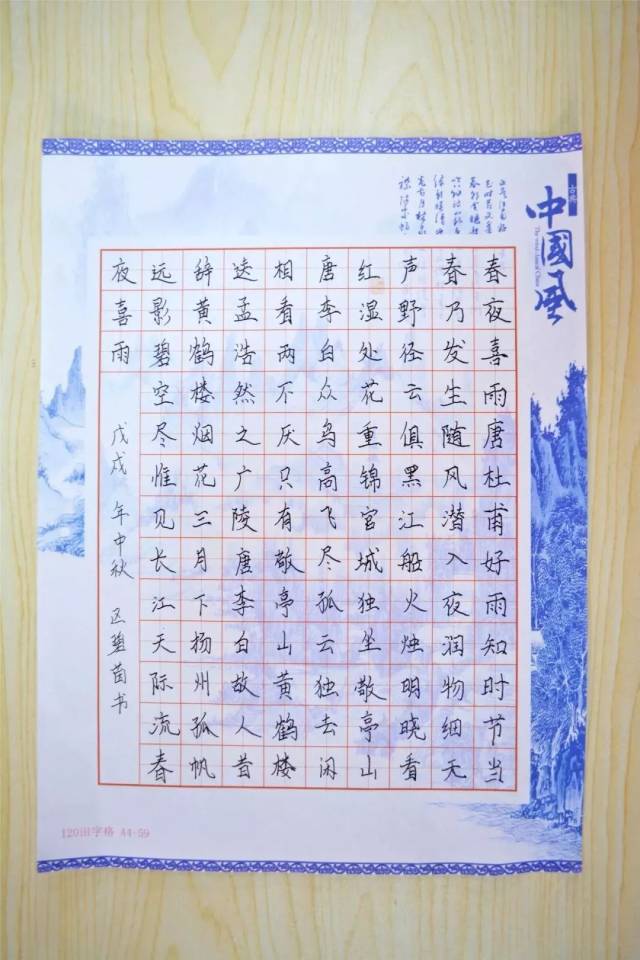 中國風
春夜喜雨唐杜甫好雨知时节当
春乃发生随风潜入夜润物细无
声野径云俱黑江船火烛明晓看
红湿处花重锦官城独坐敬亭山
唐李白众鸟高飞尽孤云独去闲
相看两不厌只有敬亭山黄鹤楼
送孟浩然之广陵唐李白故人昔
辞黄鹤楼烟花三月下扬州孤帆
远影碧空尽惟见长江天际流春
夜喜雨
戊戌年中秋 区碧茵书
120田字格 A4-59